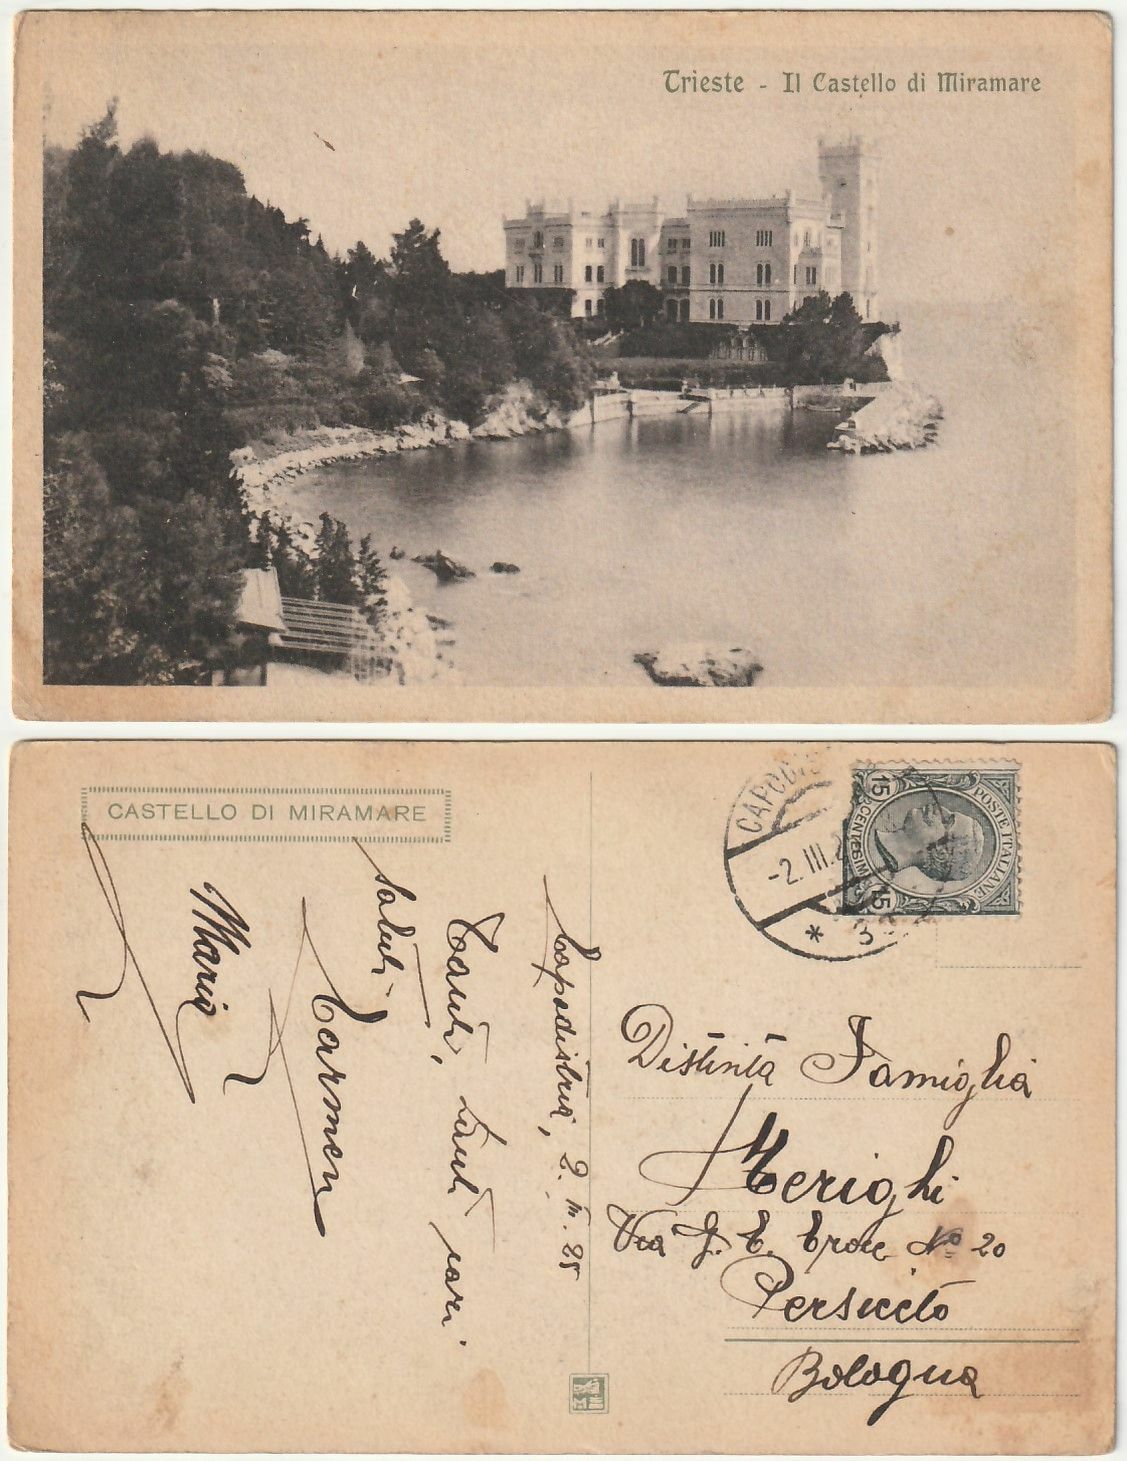 Trieste - Il Castello di Miramare
CASTELLO DI MIRAMARE
Capodistria, 2. III. 25
Tanti, tanti cari
saluti
Carmen
Mario
-2.III.2
* 3
POSTE ITALIANE
15 CENTESIMI 15
Distinta Famiglia
Merighi
Via G. C. Croce No 20
Persiceto
Bologna